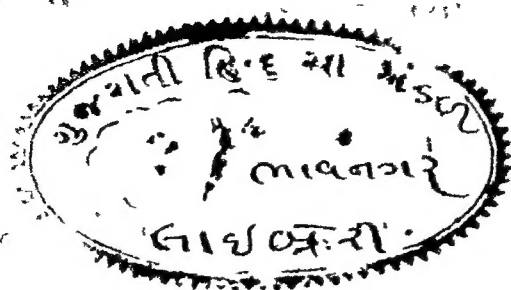 ગુજરાતી હિન્દુ સ્ત્રી મંડળ
ભાવનગર
લાઇબ્રેરી.